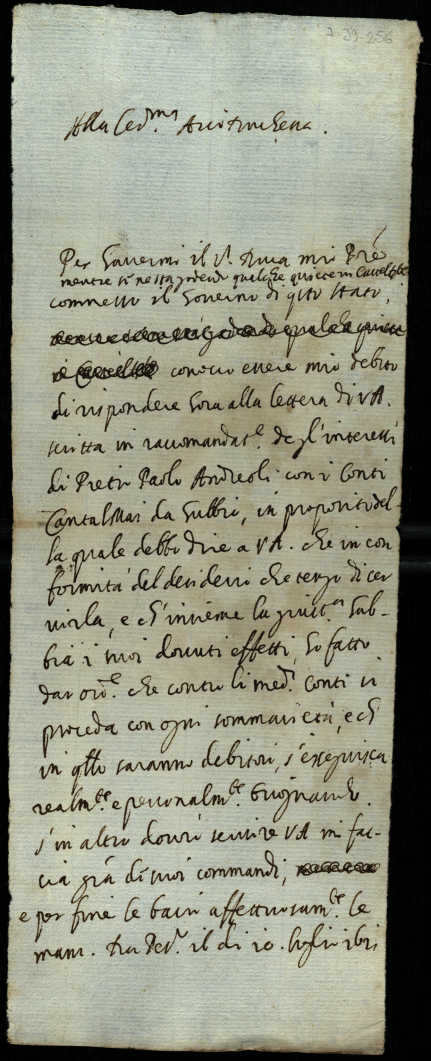 Alla Ser.ma Arciduchessa.
Per havermi il S.r Duca mio P're
mentre si ne sta godendo qualche quiete in Casteld.te
commesso il Governo di q'sto stato,
conosco essere mio debito
di rispondere hora alla lettera di V.A.
scritta in raccomandat.e degl'interessi
di Pietro Paolo Andreoli con i Conti
Cantalmai da Gubbio, in proposito del-
la quale debbo dire a V.A. che in con
formità del desiderio che tengo di ser
virla, e ch'insieme la giust.a hab-
bia i suoi dovuti effetti, ho fatto
dar ord.e che contro li med.i Conti si
proceda con ogni sommarietà, e ch'
in q'llo saranno debitori, s'esseguisca
realm.te e personalm.te bisognando.
S'in altro dovrò servire V.A. mi fac-
cia gra' di suoi commandi,
e per fine le bacio affettuosam.te le
mani. Da Pes.o il di 10. luglio